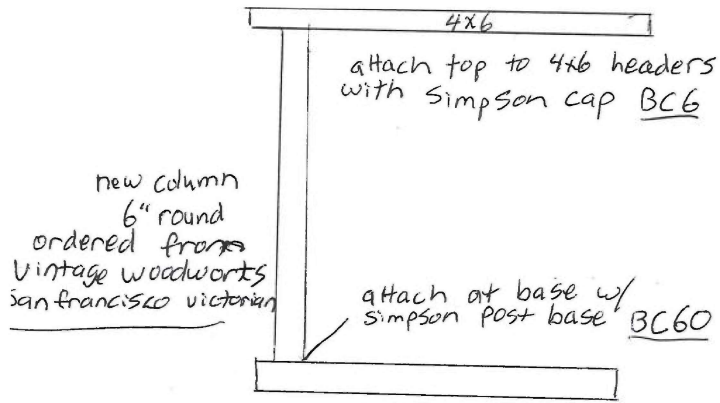 4x6
attach top to 4x6 headers
with simpson cap BC6
new column
6" round
ordered from
vintage woodworks
San francisco victorian
attach at base w/
simpson post base BC60